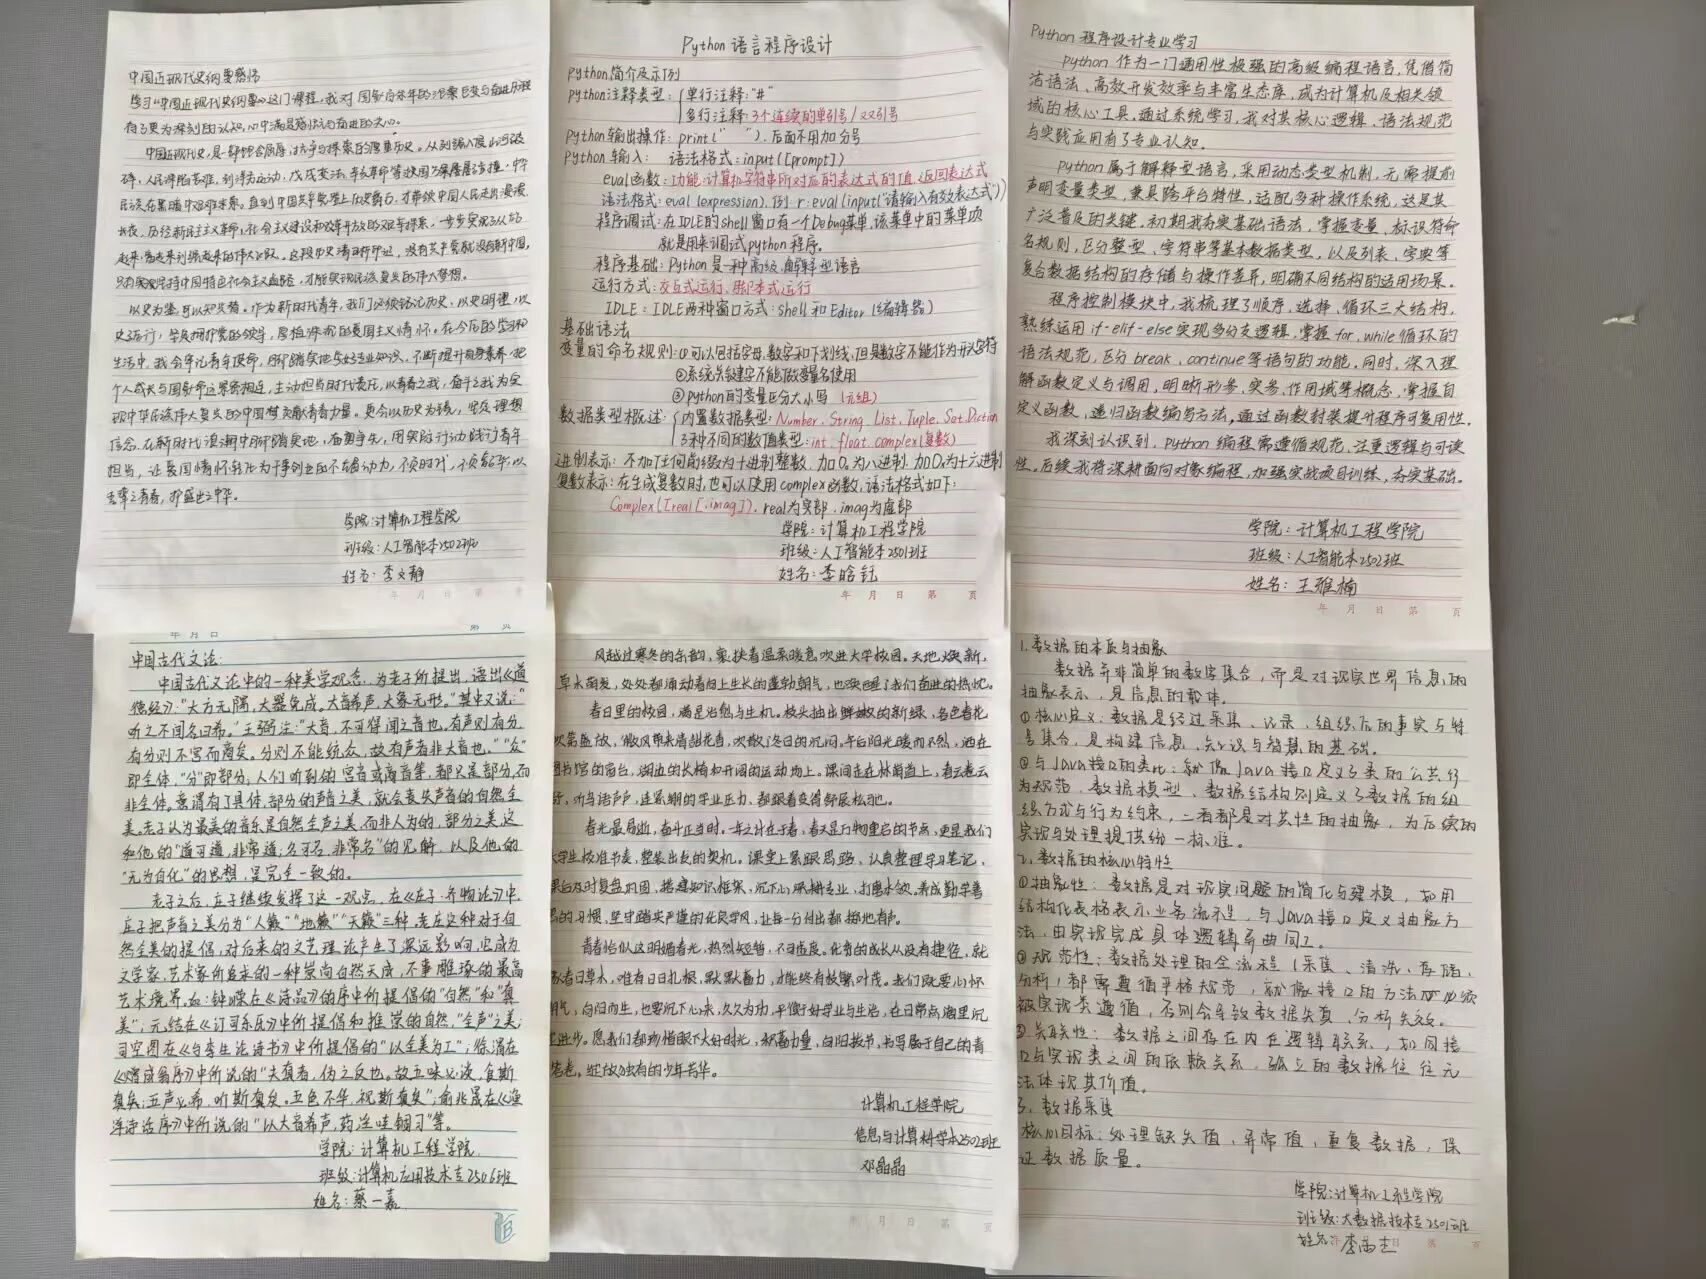 中国近现代史纲要感悟
学习《中国近现代史纲要》这门课程,我对国家百余年的沧桑巨变与奋进历程
有了更为深刻的认知,心中满是感怀与奋进的决心。
中国近现代史,是一部饱含屈辱、抗争与探索的厚重历史。从列强入侵山河破
碎,人民深陷苦难,到洋务运动,戊戌变法,辛亥革命等救国方案屡屡受挫,中华
民族在黑暗中艰难求索。直到中国共产党登上历史舞台,才带领中国人民走出漫漫
长夜,历经新民主主义革命,社会主义建设和改革开放的艰辛探索,一步步实现从站
起来、富起来到强起来的伟大飞跃。这段历史清晰印证,没有共产党就没有新中国,
只有坚定坚持中国特色社会主义道路,才能实现民族复兴的伟大梦想。
以史为鉴,可以知兴替。作为新时代青年,我们必须铭记历史,以史明理,以
史笃行,坚定拥护党的领导,厚植深沉的爱国主义情怀。在今后的学习和
生活中,我会牢记青年使命,脚踏实地学好专业知识,不断提升自身素养,把
个人成长与国家命运紧密相连,主动担当时代责任,以青春之我,奋斗之我为实
现中华民族伟大复兴的中国梦贡献青春力量。更会以历史为镜,坚定理想
信念,在新时代浪潮中脚踏实地,奋勇争先,用实际行动践行青年
担当,让爱国情怀转化为干事创业的不竭动力,不负时代,不负韶华,以
吾辈之青春,护盛世之中华。
学院:计算机工程学院
班级:人工智能本2502班
姓名:李文静
年 月 日 第 页
Python 语言程序设计
python简介及示例
python注释类型:{单行注释:"#"
多行注释:3个连续的单引号/双引号
python输出操作:print(" "),后面不用加分号
Python 输入: 语法格式:input([prompt])
eval函数:功能:计算机字符串所对应的表达式的值,返回表达式
语法格式:eval (expression).例 r:eval(input("请输入有效表达式"))
程序调试:在IDLE的shell窗口有一个Debug菜单,该菜单中的菜单项
就是用来调试python程序。
程序基础:Python是一种高级、解释型语言
运行方式:交互式运行,脚本式运行
IDLE:IDLE两种窗口方式:shell和Editor(编辑器)
基础语法
变量的命名规则:①可以包括字母、数字和下划线,但是数字不能作为开头字符
②系统关键字不能做变量名使用
③python的变量区分大小写 (元组)
数据类型概述:{内置数据类型:Number、String、List、Tuple、Set、Diction
3种不同的数值类型:int、float、complex(复数)
进制表示:不加任何前缀为十进制整数,加0o为八进制,加0x为十六进制
复数表示:在生成复数时,也可以使用complex函数,语法格式如下:
Complex([real[,imag]),real为实部,imag为虚部
学院:计算机工程学院
班级:人工智能本2501班
姓名:李晗钰
年 月 日 第 页
Python 程序设计专业学习
python 作为一门通用性极强的高级编程语言,凭借简
洁语法、高效开发效率与丰富生态库,成为计算机及相关领
域的核心工具。通过系统学习,我对其核心逻辑、语法规范
与实践应用有了专业认知。
python属于解释型语言,采用动态类型机制,无需提前
声明变量类型,兼具跨平台特性,适配多种操作系统,这是其
广泛普及的关键。初期我夯实基础语法,掌握变量、标识符命
名规则,区分整型、字符串等基本数据类型,以及列表、字典等
复合数据结构的存储与操作差异,明确不同结构的适用场景。
程序控制模块中,我梳理了顺序、选择、循环三大结构,
熟练运用if-elif-else实现多分支逻辑,掌握for、while循环的
语法规范,区分break、continue等语句的功能。同时,深入理
解函数定义与调用,明晰形参、实参、作用域等概念,掌握自
定义函数、递归函数编写方法,通过函数封装提升程序可复用性。
我深刻认识到,python编程需遵循规范,注重逻辑与可读
性。后续我将深耕面向对象编程,加强实战项目训练,夯实基础。
学院:计算机工程学院
班级:人工智能本2502班
姓名:王雅楠
年 月 日 第 页
年 月 日 第 页
中国古代文论:
中国古代文论中的一种美学观念,为老子所提出,语出《道
德经》:"大方无隅,大器免成。大音希声,大象无形。"其中又说:"
听之不闻名曰希。"王弼注:"大音,不可得闻之音也。有声则有分,
有分则不宫而商矣。分则不能统众,故有声者非大音也。""众"
即全体,"分"即部分;人们听到的宫音或商音等,都只是部分,而
非全体。意谓有了具体,部分的声音之美,就会丧失声音的自然全
美。老子认为最美的音乐是自然全声之美,而非人为的,部分之美,这
和他的"道可道,非常道;名可名,非常名"的见解,以及他的
"无为自化"的思想,是完全一致的。
老子之后,庄子继续发挥了这一观点,在《庄子·齐物论》中,
庄子把声音之美分为"人籁""地籁""天籁"三种。老庄这种对于自
然全美的提倡,对后来的文艺理论产生了深远影响,它成为
文学家、艺术家所追求的一种崇尚自然天成,不事雕琢的最高
艺术境界。如:钟嵘在《诗品》的序中所提倡的"自然"和"真
美",元结在《订司乐氏》中所提倡和推崇的自然,"全声"之美;
司空图在《与李生论诗书》中所提倡的"以全美为工";徐渭在
《赠成翁序》中所说的"夫真者,伪之反也。故五味必淡,食斯
真矣;五声必希,听斯真矣。五色不华,视斯真矣";俞兆晟在《渔
洋诗话序》中所说的"以大音希声,药淫哇锢习"等。
学院:计算机工程学院
班级:计算机应用技术专2506班
姓名:蔡一嘉
风越过寒冬的余韵,裹挟着温柔暖意吹进大学校园。天地焕新,
草木萌发,处处都涌动着向上生长的蓬勃朝气,也唤醒了我们奋进的热忱。
春日里的校园,满是治愈与生机。枝头抽出鲜嫩的新绿,各色春花
次第盛放,微风带来清甜花香,吹散了冬日的沉闷。午后阳光暖而不燥,洒在
图书馆的窗台,湖边的长椅和开阔的运动场上。课间走在林荫道上,看云卷云
舒,听鸟语声声,连紧绷的学业压力,都跟着变得舒展松弛。
春光最易逝,奋斗正当时。一年之计在于春,春天是万物重启的节点,更是我们
大学生校准节奏,整装出发的契机。课堂上紧跟思路,认真整理学习笔记,
课后及时复盘巩固,搭建知识框架,沉下心深耕专业,打磨本领。养成勤学善
思的习惯,坚守踏实严谨的优良学风,让每一分付出都掷地有声。
青春恰似这明媚春光,热烈短暂,不可虚度。优秀的成长从没有捷径,就
像春日草木,唯有日日扎根,默默蓄力,才能终有枝繁叶茂。我们既要心怀
朝气,向阳而生,也要沉下心来,久久为功,平衡好学业与生活,在日常点滴里沉
淀进步。愿我们都珍惜眼下大好时光,积蓄力量,向阳拔节,书写属于自己的青
春答卷,绽放独有的少年芳华。
计算机工程学院
信息与计算科学本2502班
邓晶晶
年 月 日 第 页
1.数据的本质与抽象
数据并非简单的数字集合,而是对现实世界信息的
抽象表示,是信息的载体。
①核心定义:数据是经过采集、记录、组织后的事实与符
号集合,是构建信息、知识与智慧的基础。
②与Java接口的类比:就像Java接口定义了类的公共行
为规范,数据模型、数据结构则定义了数据的组
织方式与行为约束,二者都是对共性的抽象,为后续的
实现与处理提供统一标准。
2.数据的核心特性
①抽象性:数据是对现实问题的简化与建模,如用
结构化表格表示业务流程,与Java接口定义抽象方
法,由实现完成具体逻辑异曲同工。
②规范性:数据处理的全流程(采集、清洗、存储、
分析)都需遵循严格规范,就像接口的方法必须
被实现类遵循,否则会导致数据失真、分析失效。
③关联性:数据之间存在内在逻辑联系,如同接
口与实现类之间的依赖关系,孤立的数据往往无
法体现其价值。
3.数据采集
核心目标:处理缺失值,异常值,重复数据,保
证数据质量。
学院:计算机工程学院
班级:大数据技术专2501班
姓名:李尚志